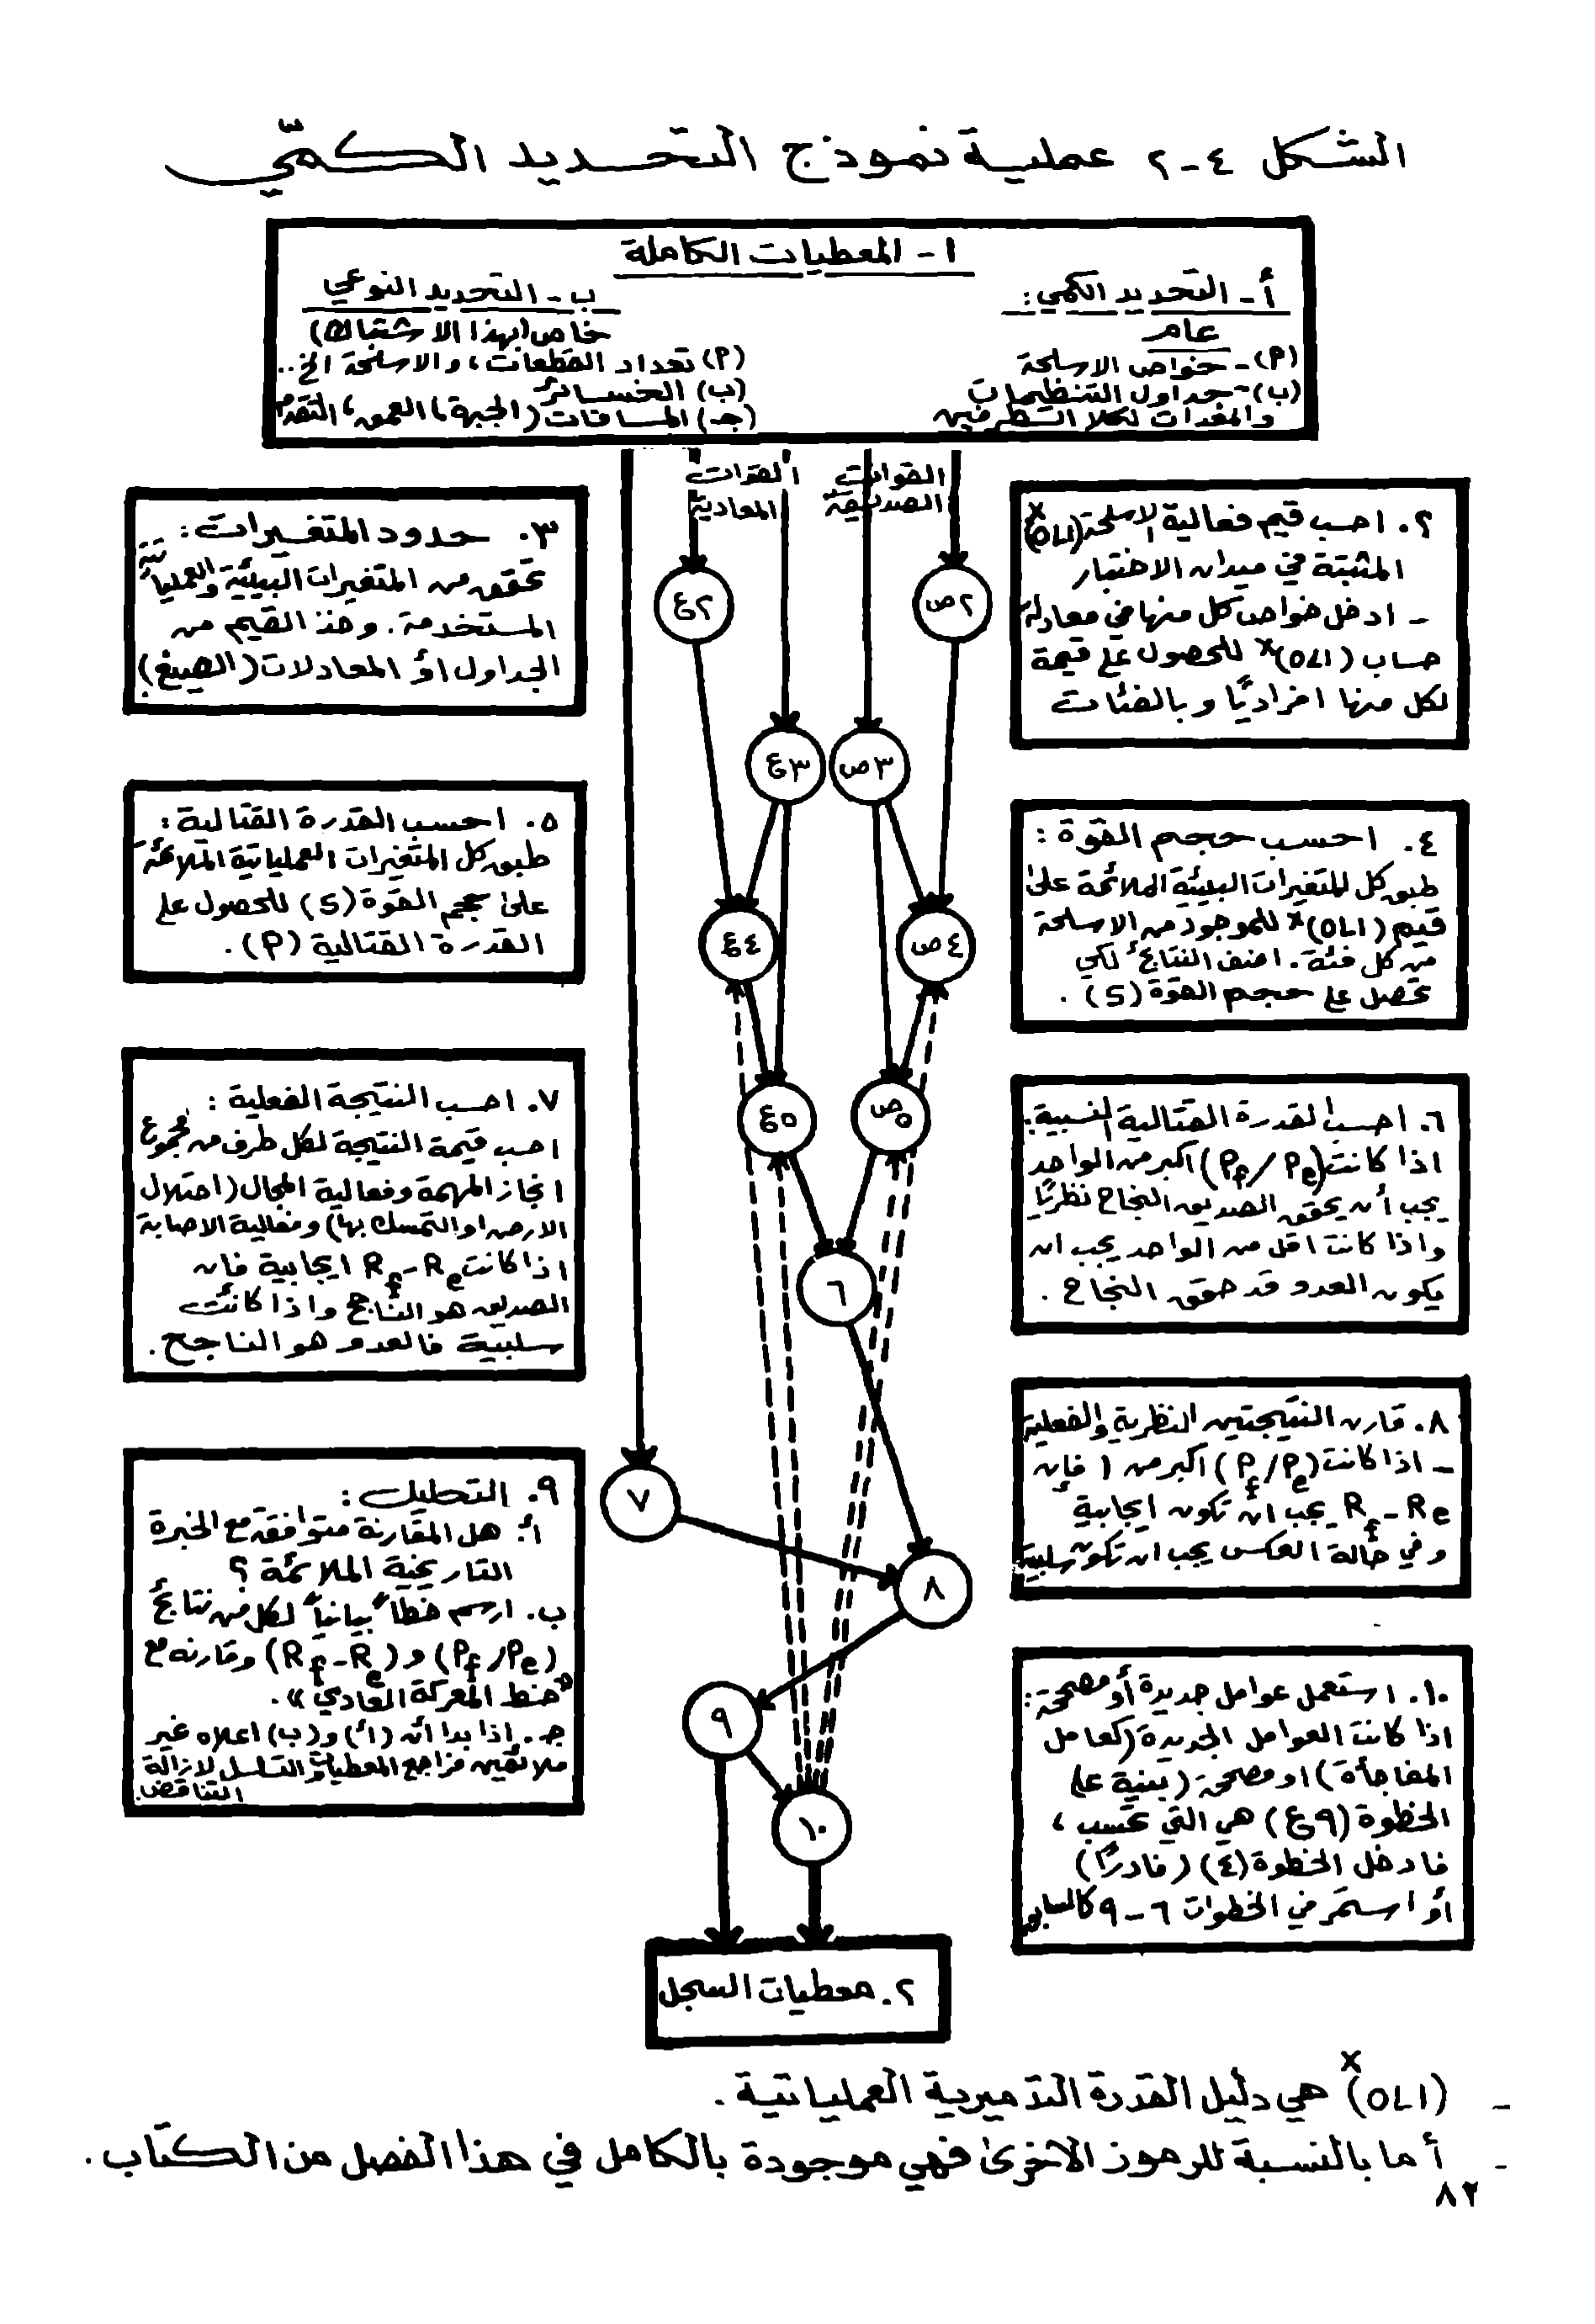 الشكل ٤-٢ عملية نموذج التحديد الكمّي
١- المعطيات الكاملة
أ- التحديد الكمي:
عام
(P)- خواص الاسلحة
(ب)- جداول التنظيمات
والمعدات لكلا الطرفين
ب- التحديد النوعي
خاص (بهذا الاشتباك)
(P) تعداد القطعات، والاسلحة الخ..
(ب) الخسائر
(جـ) المسافات (الجبهة، العمق، التقدم
القوات الصديقة
القوات المعادية
٢. احسب قيم فعالية الاسلحة (OLI)x
المثبتة في ميدان الاختبار
- ادخل خواص كل منها في معادلة
حساب (OLI)x للحصول على قيمة
لكل منها افراديًا وبالفئات
٣. حدود المتغيرات:
تحقق من المتغيرات البيئية والعملياتية
المستخدمة. وخذ القيم من
الجداول أو المعادلات (الصيغ).
٤. احسب حجم القوة:
طبق كل المتغيرات البيئية الملائمة على
قيم (OLI)x للموجود من الاسلحة
من كل فئة. اضف النتائج لكي
تحصل على حجم القوة (S).
٥. احسب القدرة القتالية:
طبق كل المتغيرات العملياتية الملائمة
على حجم القوة (S) للحصول على
القدرة القتالية (P).
٦. احسب القدرة القتالية النسبية:
اذا كانت (Pf/Pe) اكبر من الواحد
يجب أن يحقق الصديق النجاح نظريًا
واذا كانت اقل من الواحد يجب ان
يكون العدو قد حقق النجاح.
٧. احسب النتيجة الفعلية:
احسب قيمة النتيجة لكل طرف من مجموع
انجاز المهمة وفعالية المجال (احتلال
الارض او التمسك بها) وفعالية الاصابة
اذا كانت Rf-Re ايجابية فان
الصديق هو الناجح واذا كانت
سلبية فالعدو هو الناجح.
٨. قارن النتيجتين النظرية والفعلية
- اذا كانت (Pf/Pe) اكبر من ١ فإن
Rf-Re يجب ان تكون ايجابية
وفي حالة العكس يجب ان تكون سلبية
٩. التحليل:
أ. هل المقارنة متوافقة مع الخبرة
التاريخية الملائمة؟
ب. ارسم خطاً بيانياً لكل من نتائج
(Pf/Pe) و (Rf-Re) وقارنه مع
«خط المعركة العادي».
جـ. إذا بدا أن (أ) و(ب) اعلاه غير
ملائمين فراجع المعطيات والتسلسل لازالة
التناقض.
١٠. استعمل عوامل جديدة أو مصححة:
اذا كانت العوامل الجديدة (كعامل
المفاجأة) او مصححة (بنية على
الخطوة (٩ع) هي التي تحسب،
فادخل الخطوة (٤) (نادرًا)
أو استمر في الخطوات ٦-٩ كالسابق
٢ع
٢ص
٣ع
٣ص
٤ع
٤ص
٥ع
٥ص
٦
٧
٨
٩
١٠
٢. معطيات السجل
- (OLI)x هي دليل القدرة التدميرية العملياتية.
- أما بالنسبة للرموز الأخرى فهي موجودة بالكامل في هذا الفصل من الكتاب.
٨٢